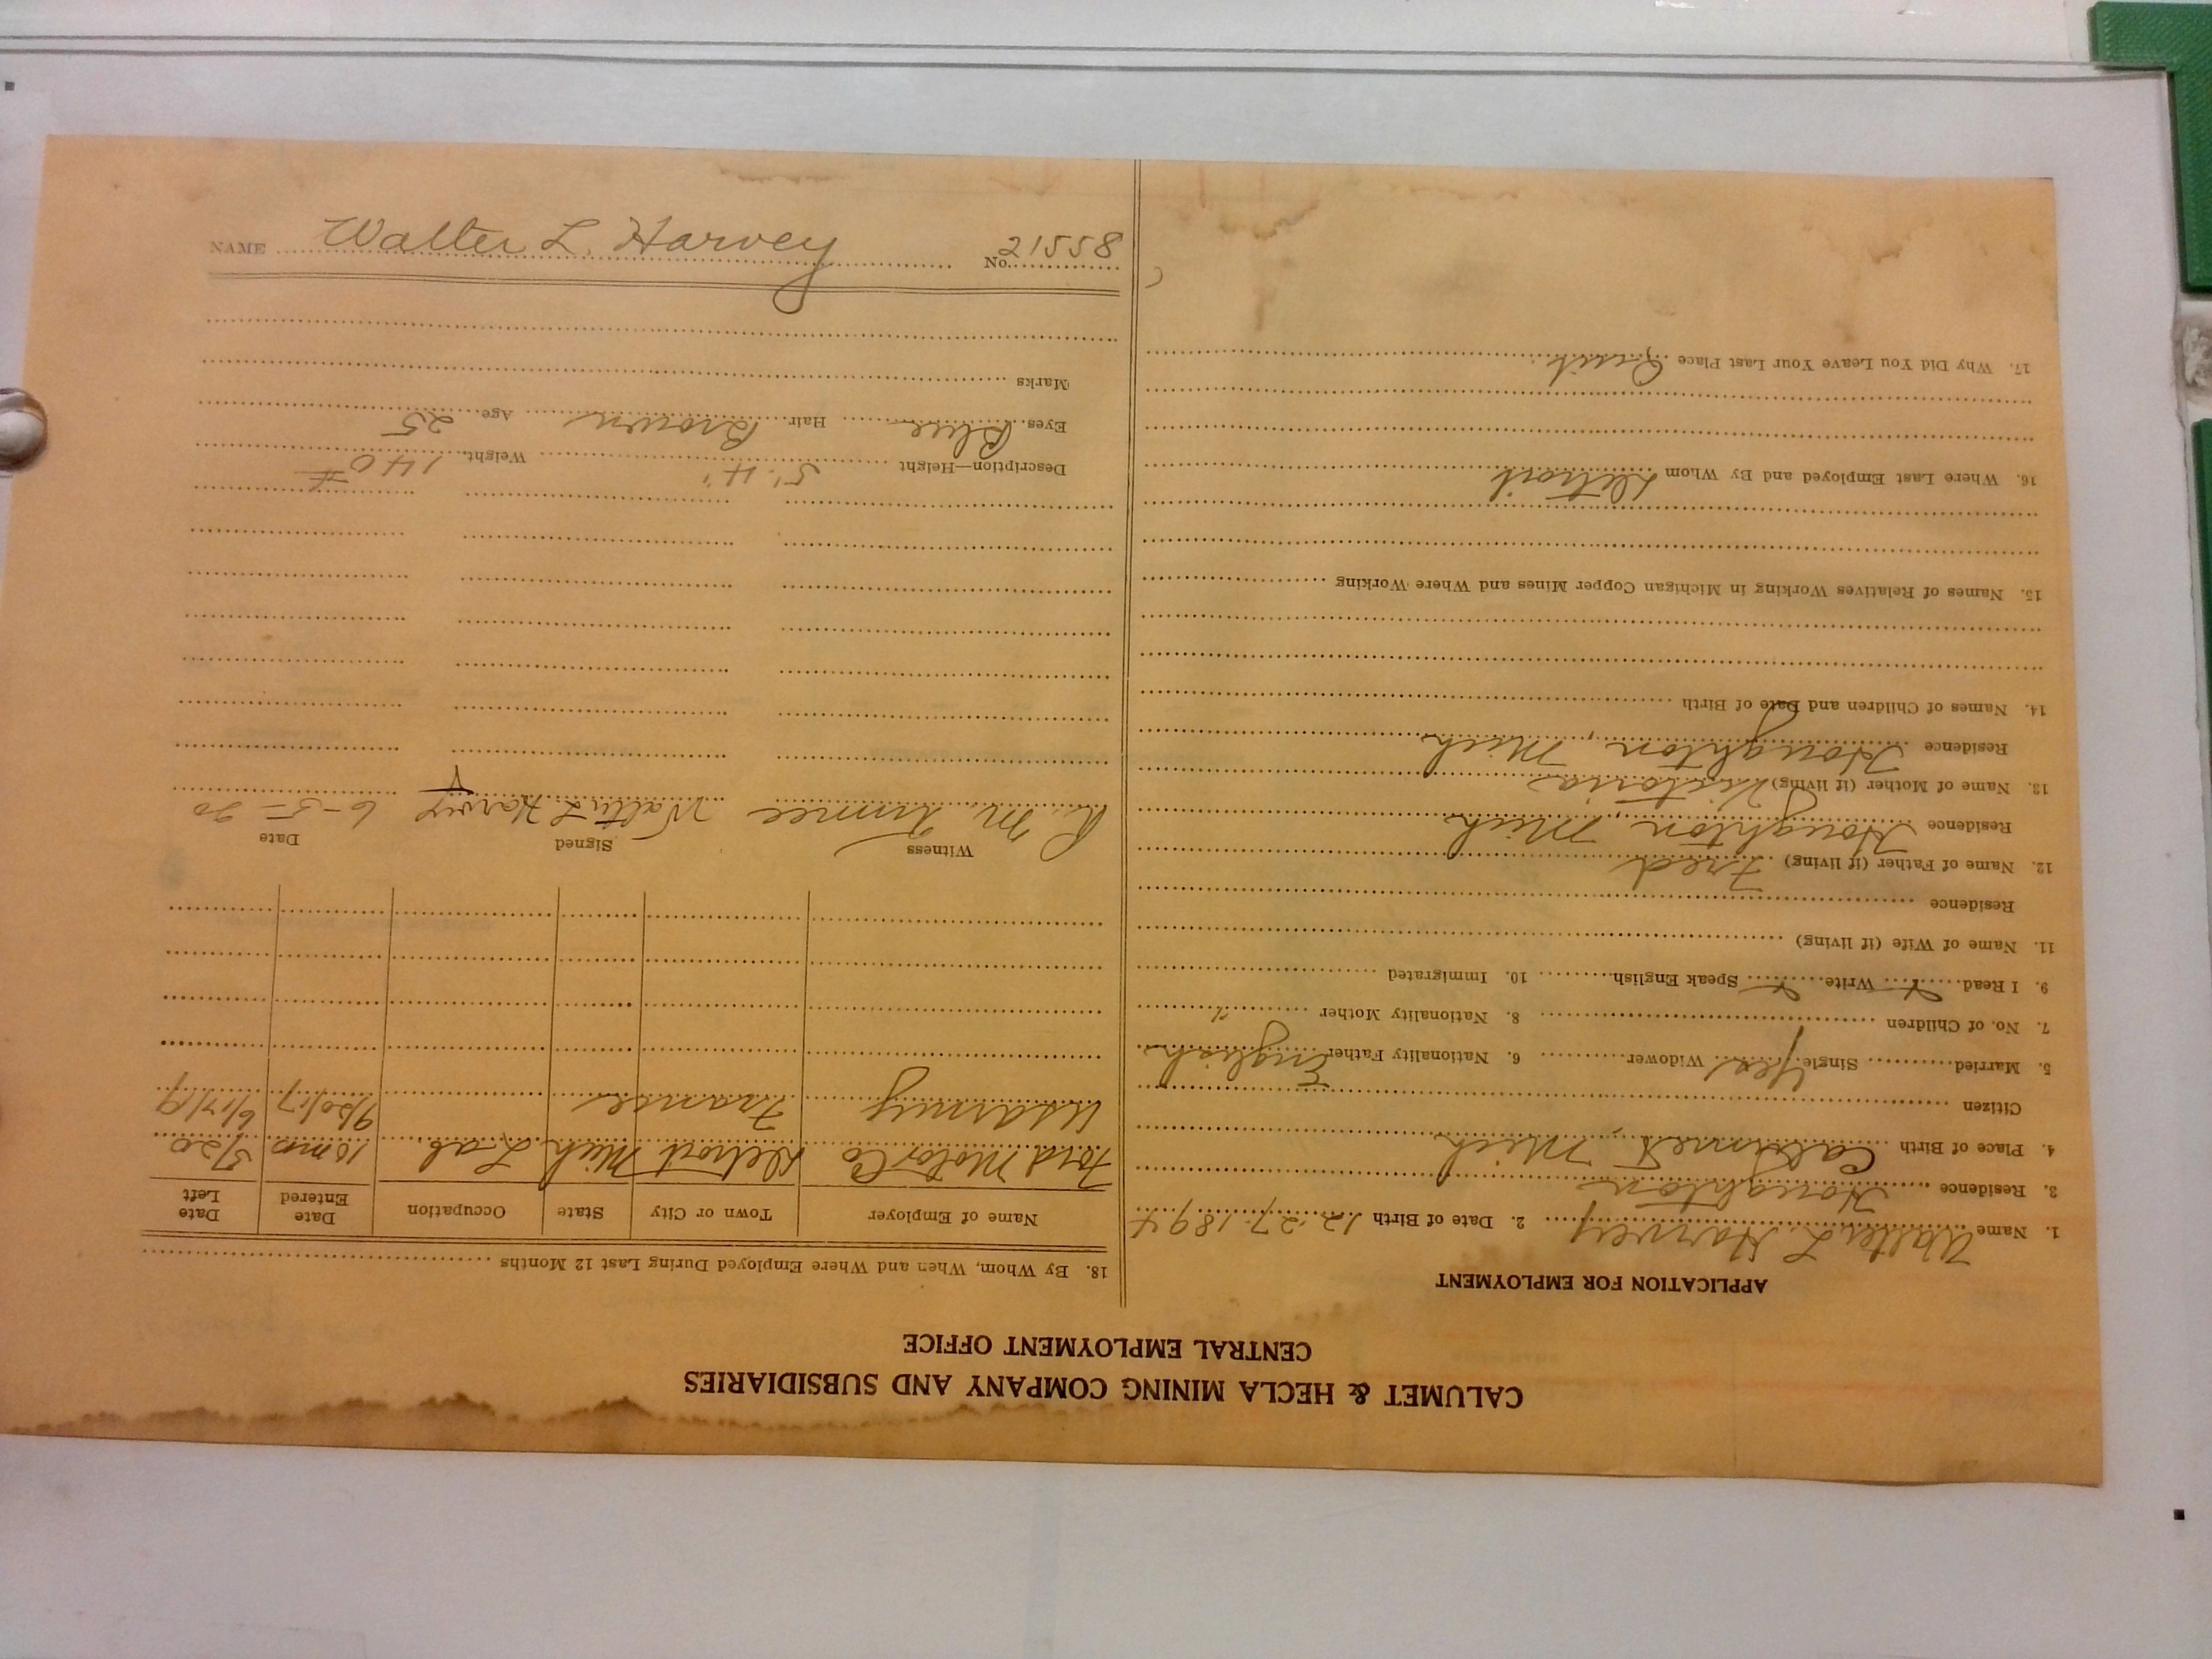 CALUMET & HECLA MINING COMPANY AND SUBSIDIARIES
CENTRAL EMPLOYMENT OFFICE
APPLICATION FOR EMPLOYMENT
1. Name Walter L Harvey 2. Date of Birth 12.27.1894
3. Residence Houghton
4. Place of Birth Calumet, Mich
Citizen
5. Married Single Yes Widower 6. Nationality Father English
7. No. of Children 8. Nationality Mother "
9. I Read Write Speak English 10. Immigrated
11. Name of Wife (if living)
Residence
12. Name of Father (if living) Fred
Residence Houghton, Mich
13. Name of Mother (if living) Victoria
Residence Houghton, Mich
14. Names of Children and Date of Birth
15. Names of Relatives Working in Michigan Copper Mines and Where Working
16. Where Last Employed and By Whom Detroit
17. Why Did You Leave Your Last Place Quit
18. By Whom, When and Where Employed During Last 12 Months
Name of Employer Town or City State Occupation Date Entered Date Left
Ford Motor Co Detroit Mich Lab. 10 mo 5/20
US army France 9/20/17 6/17/19
Witness Signed Date
R. M. Walter L Harvey 6-5-20
Description—Height 5' 4" Weight 140 #
Eyes Blue Hair Brown Age 25
Marks
NAME Walter L. Harvey No. 21558